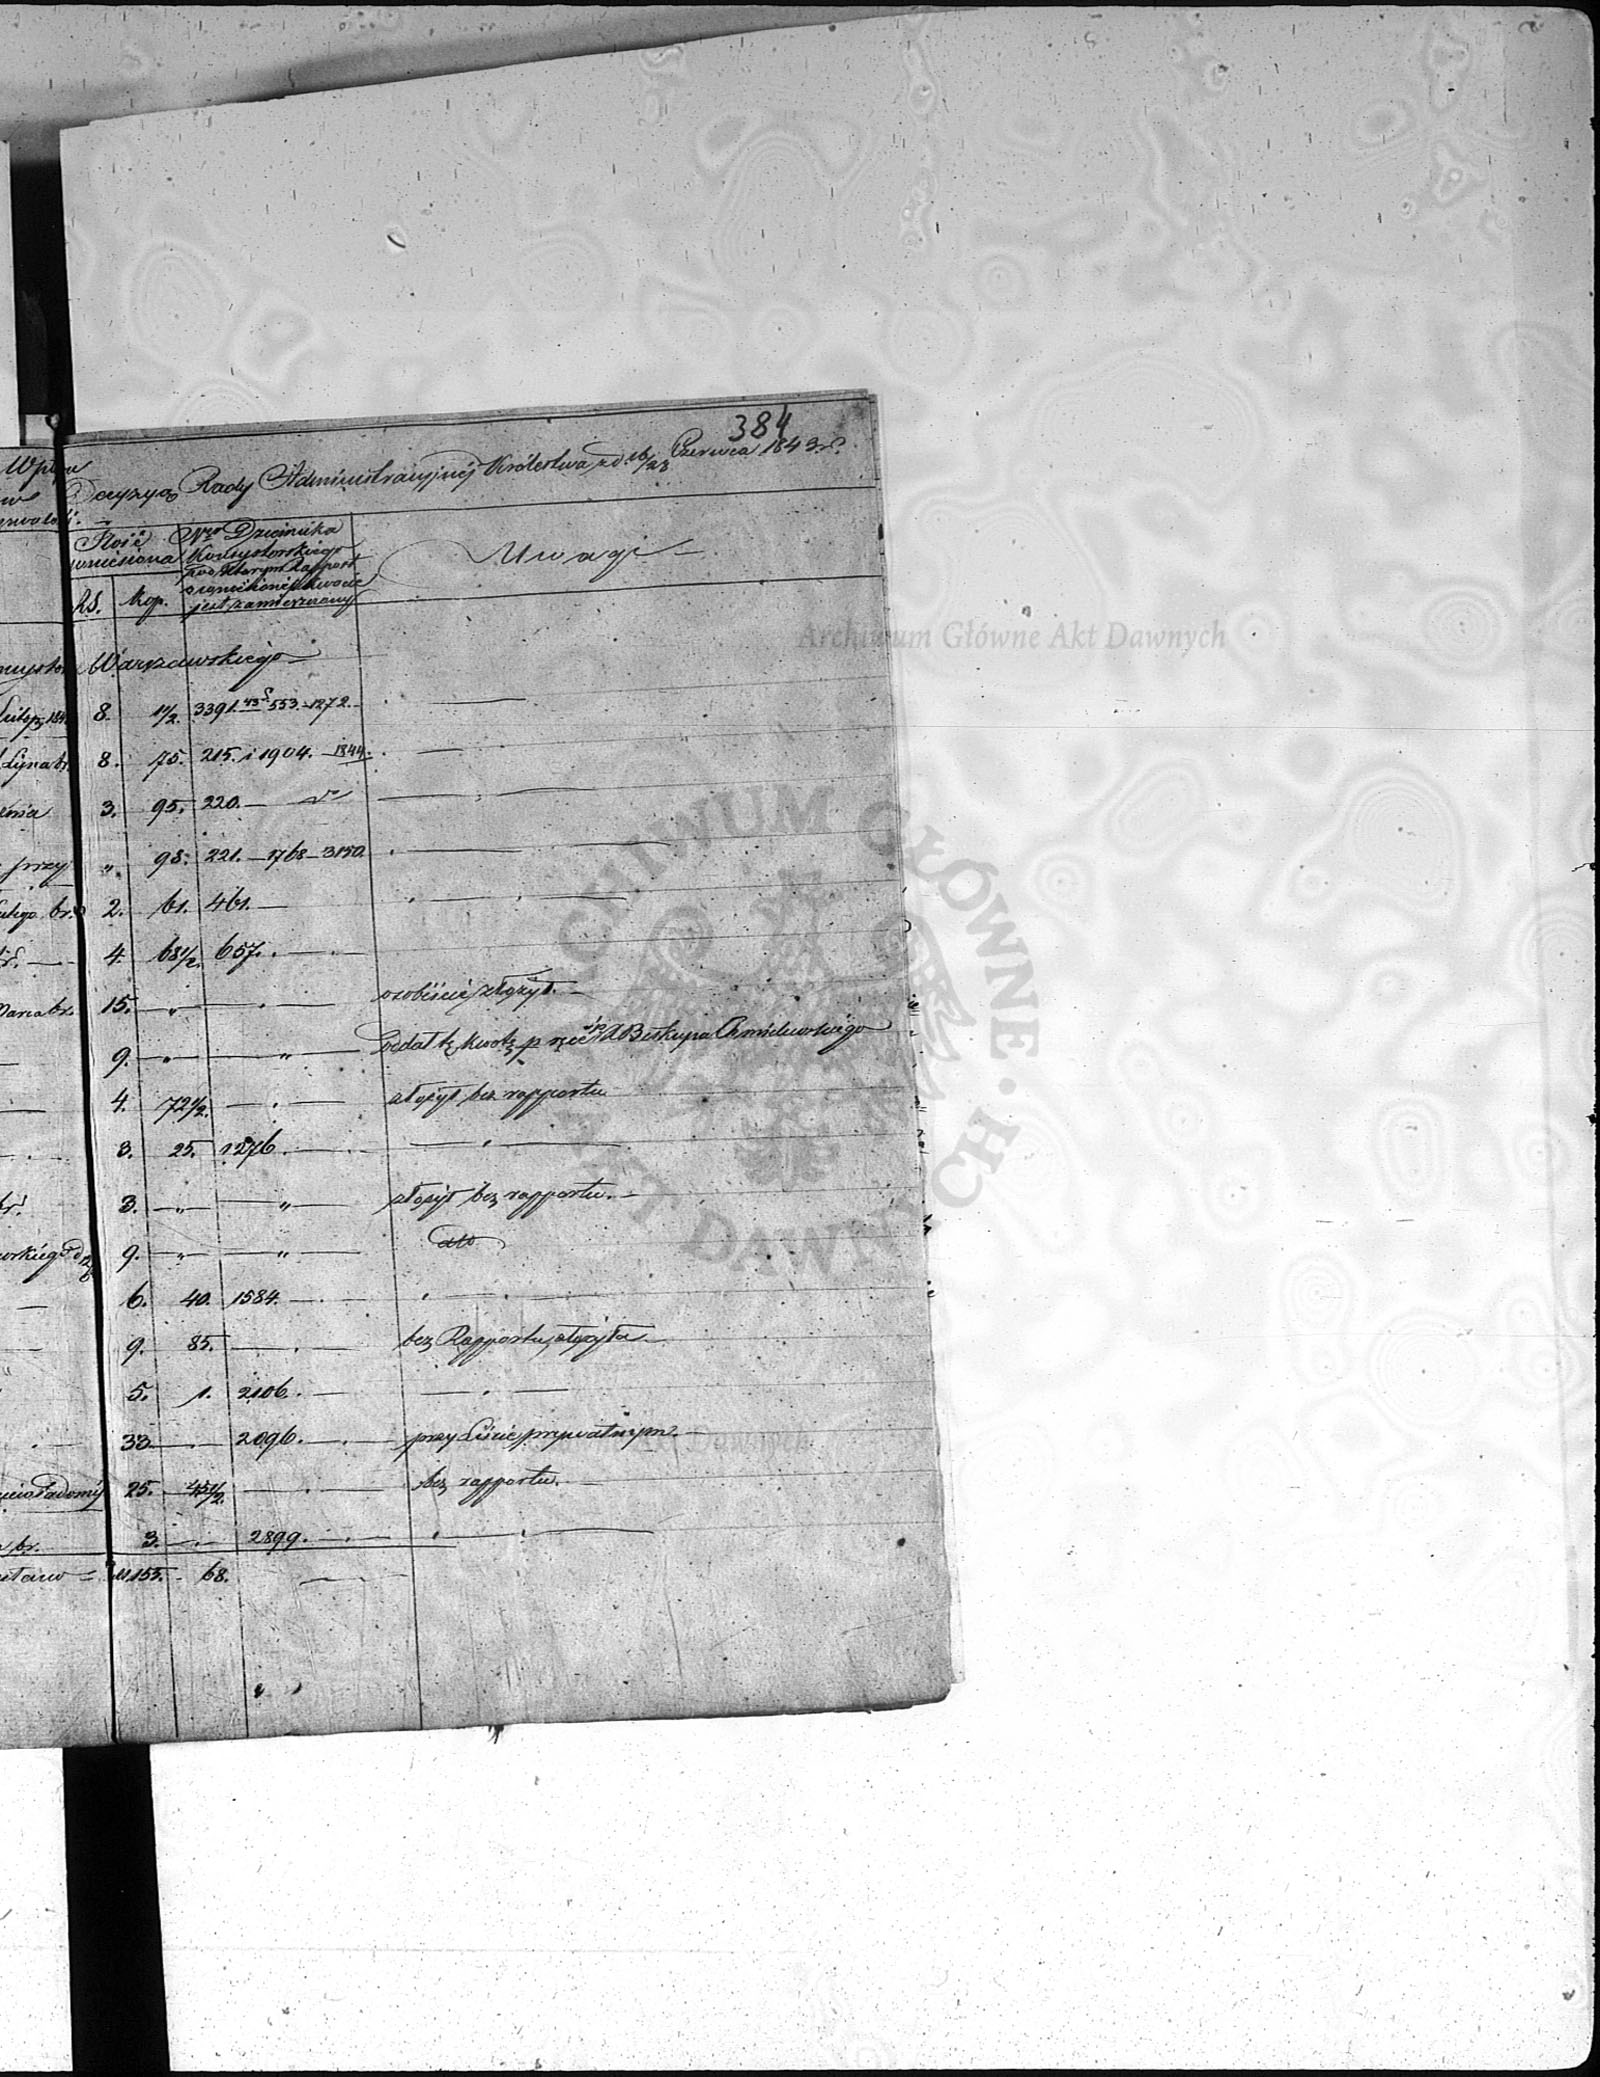 384
Decyzyą Rady Administracyjnéj Królestwa z d. 16/28 Czerwca 1843 r.
Ilość
wniesiona
Nro Dziennika
Konsystorskiego
pod którym Rapport
o wniesionej kwocie
jest zamieszczony
Uwagi
RS. Kop.
Warszawskiego
8. 1 1/2. 3391. 43 553. 1272.
Lyna br. 8. 75. 215. i 1904. 1844.
3. 95. 220. do
przy „ 98. 221. 1768 3150.
br. 2. 61. 461.
4. 68 1/2. 657.
Marca br. 15. „ osobiście złożył.
9. „ „ Oddał tę kwotę p ręce Biskupa Chmielewskiego
4. 72 1/2. złożył bez rapportu
3. 25. 1276.
br. 3. „ „ złożył bez rapportu.
9. „ „ dto
6. 40. 1584.
9. 85. bez Rapportu złożyła
5. 1. 2106.
33. 2096. przy Liście prywatnym.
25. 45 1/2. bez rapportu.
br. 3. 2899.
153. 68.
Archiwum Główne Akt Dawnych
ARCHIWUM GŁÓWNE AKT DAWNYCH